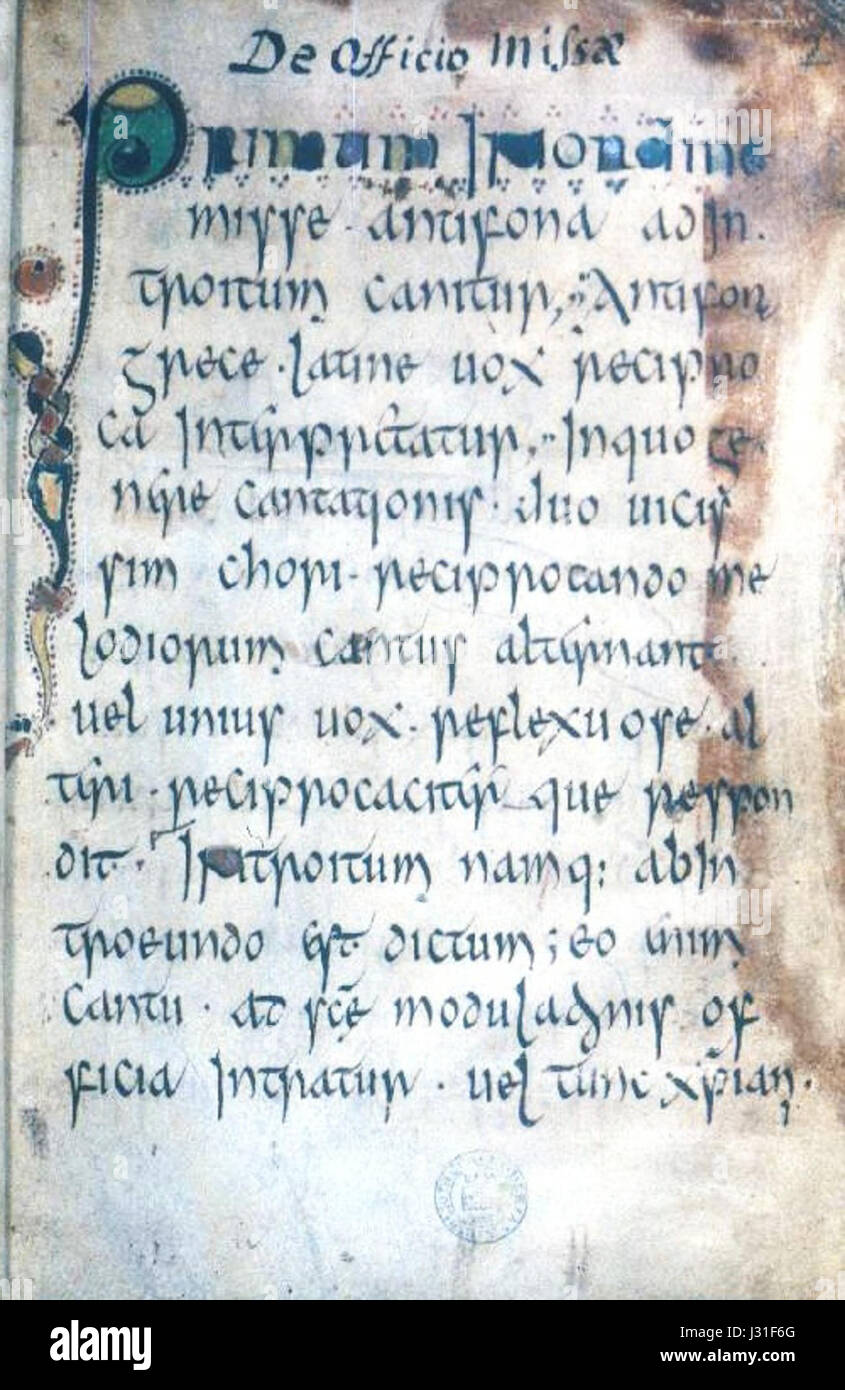 De Officio Missæ
2
Primum In ordine
misse · antifona ad In·
troitum canitur,·· Antifon
grece · Latine uox recipro
ca Interpretatur,·· In quo ge·
nere cantationis · duo uicis
sim chori · reciprocando me
lodiorum cantus alternant
uel unius uox · reflexuose · al
teri · reciprocaciter que respon
dit· Introitum namq: ab In
troeundo est dictum ; eo enim
cantu · at scē modulationis of
ficia Intratur · uel tunc xp̄ian·
alamy
J31F6G
www.alamy.com